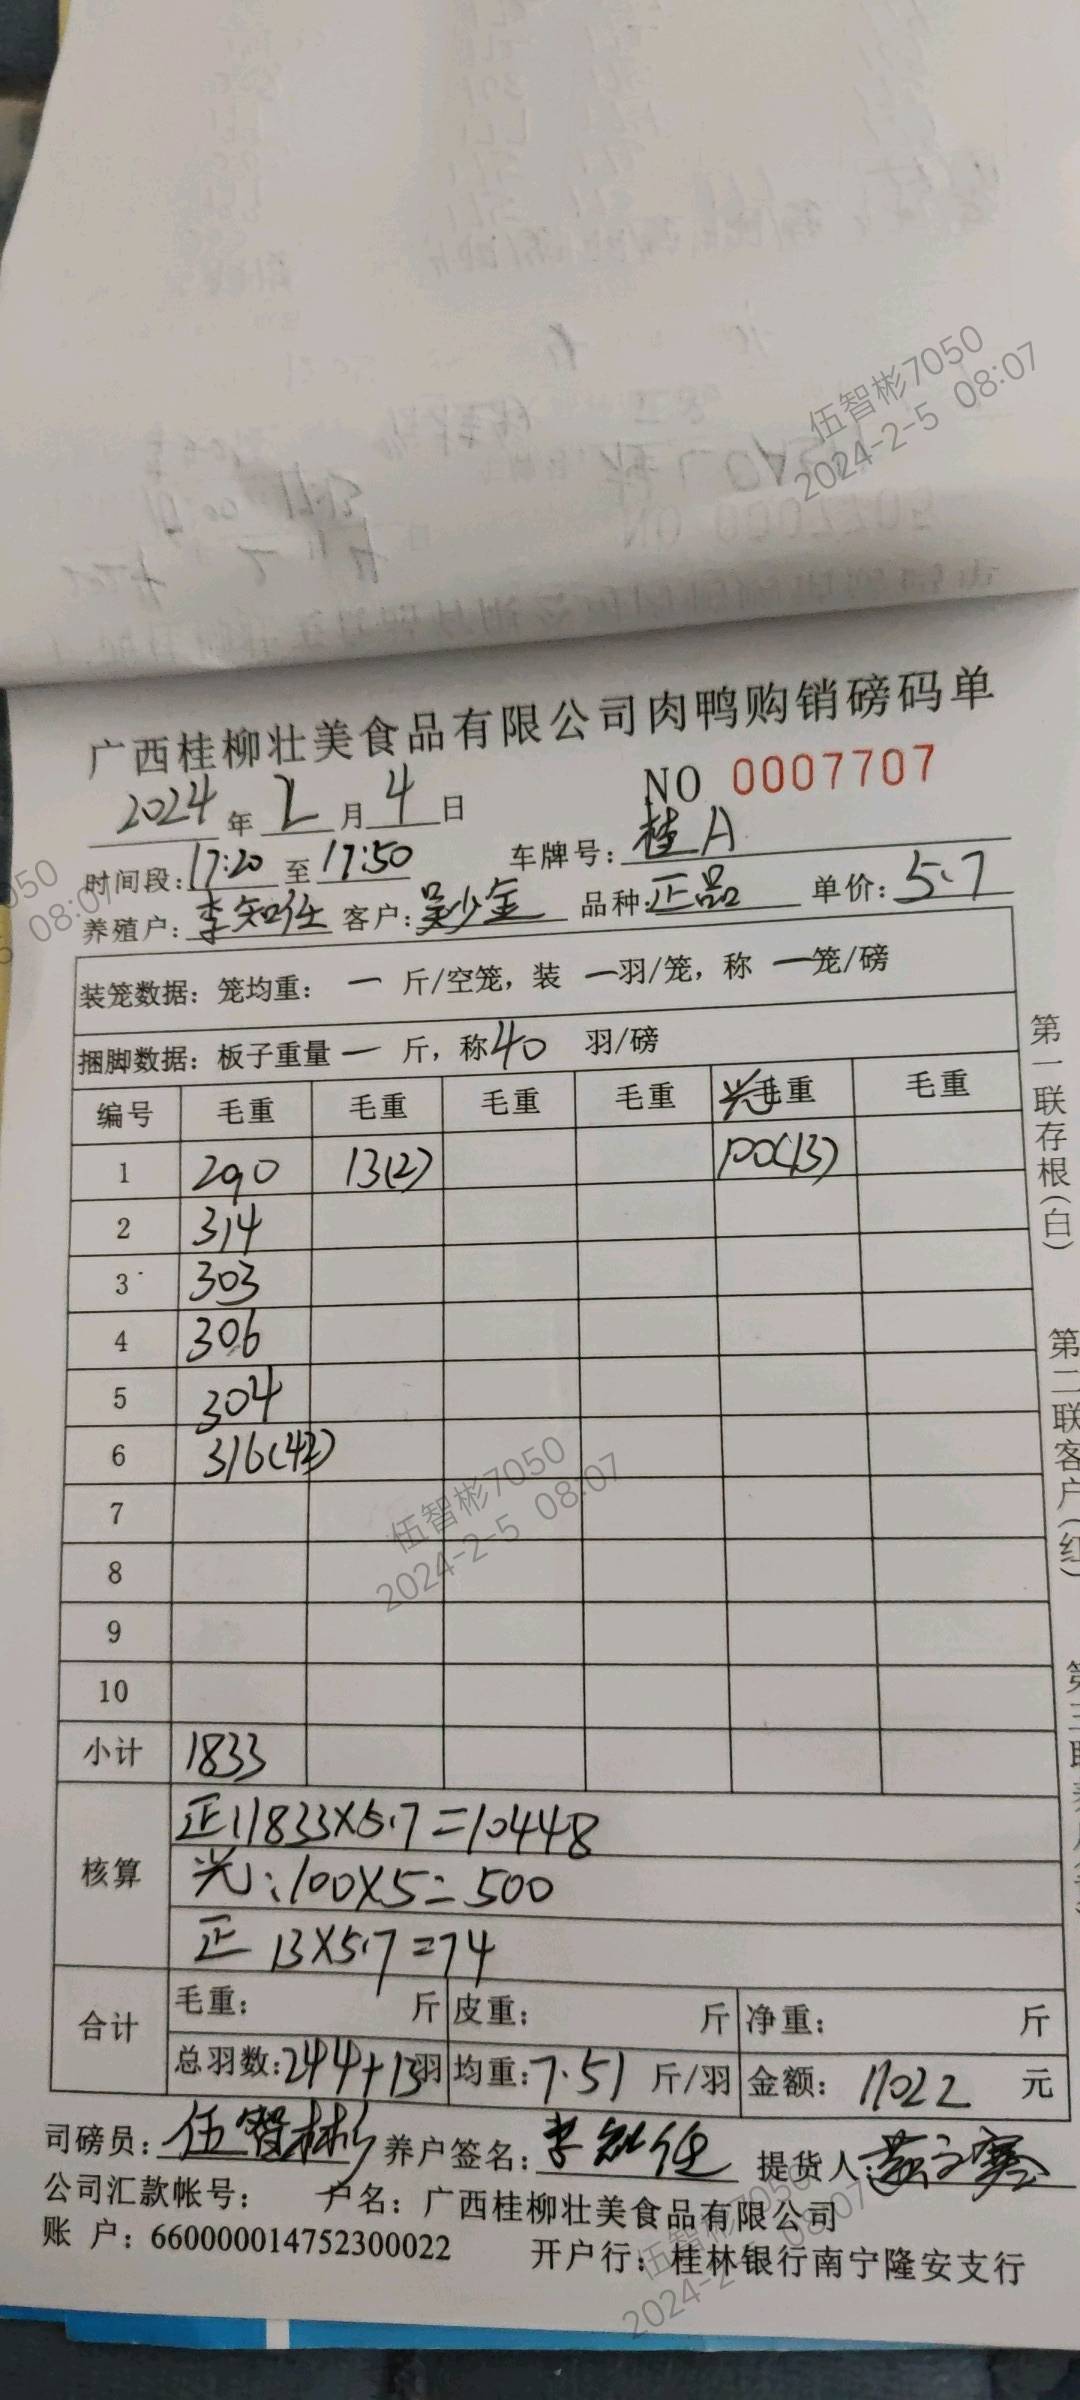 伍智彬7050
2024-2-5 08:07
广西桂柳壮美食品有限公司肉鸭购销磅码单
2024年2月4日 NO 0007707
时间段:17:20至17:50 车牌号:桂A
养殖户:李知任 客户:吴少金 品种:正品 单价:5.7
装笼数据：笼均重：一 斤/空笼，装 一羽/笼，称 一笼/磅
捆脚数据：板子重量 一 斤，称40 羽/磅
编号 毛重 毛重 毛重 毛重 光毛重 毛重
1 290 13(2) 100(13)
2 314
3 303
4 306
5 304
6 316(42)
7
8
9
10
小计 1833
核算 正:1833×5.7=10448
光:100×5=500
正 13×5.7=74
合计 毛重: 斤 皮重: 斤 净重: 斤
总羽数:244+13羽 均重:7.51 斤/羽 金额: 11022 元
司磅员:伍智彬 养户签名:李知任 提货人:
公司汇款帐号: 户名：广西桂柳壮美食品有限公司
账 户：660000014752300022 开户行：桂林银行南宁隆安支行
第一联存根(白)
第二联客户(红)
伍智彬7050
2024-2-5 08:07
伍智彬7050
2024-2-5 08:07